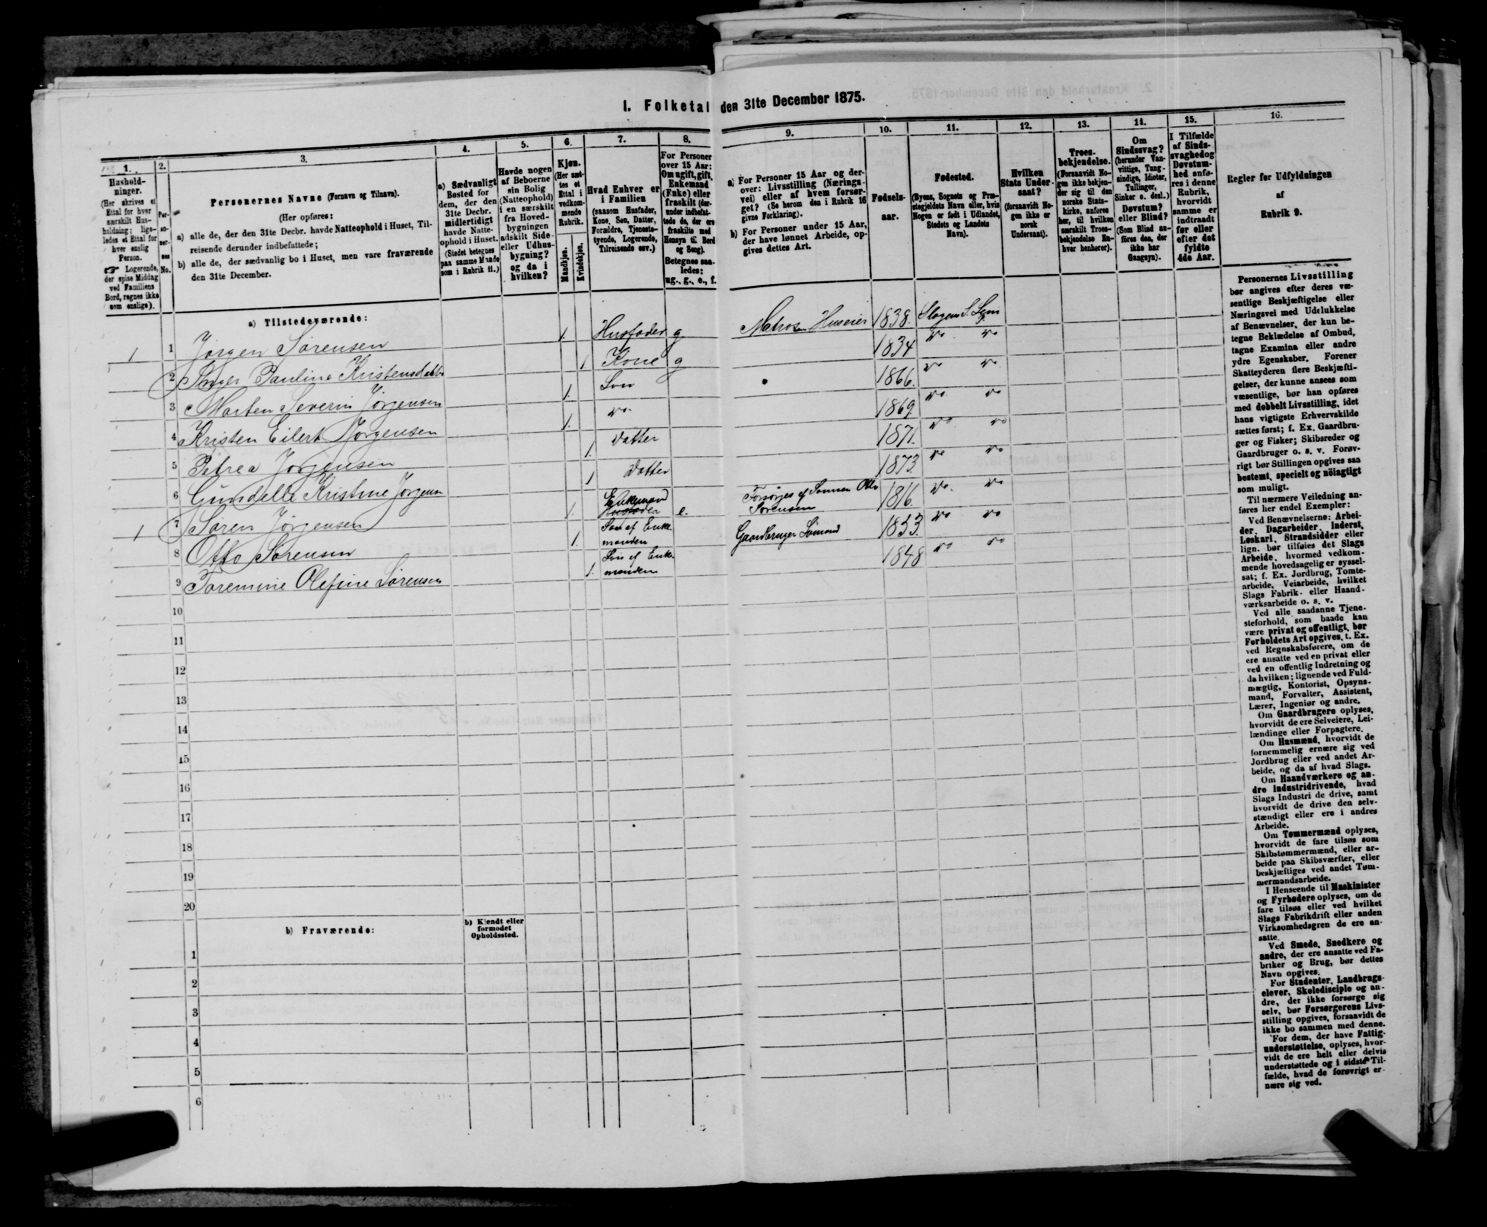 I. Folketal den 31te December 1875.
1.
Hushold-
ninger.
(Her skrives et
Ettal for hver
særskilt Hus-
holdning; lige-
ledes et Ettal for
hver enslig
Person.
☞ Logerende,
der spise Middag
ved Familiens
Bord, regnes ikke
som enslige).
2.
Per-
so-
ner-
nes
No.
3.
Personernes Navne (Fornavn og Tilnavn).
(Her opføres:
a) alle de, der den 31te Decbr. havde Natteophold i Huset, Til-
reisende derunder indbefattede;
b) alle de, der sædvanlig bo i Huset, men vare fraværende
den 31te December.
4.
a) Sædvanligt
Bosted for
dem, der den
31te Decbr.
midlertidigt
havde Natte-
ophold i Huset.
(Stedet betegnes
paa samme Maade
som i Rubrik 11.)
5.
Havde nogen
af Beboerne
sin Bolig
(Natteophold)
i en særskilt
fra Hoved-
bygningen
adskilt Side-
eller Udhus-
bygning?
og da i
hvilken?
6.
Kjøn.
(Her sæt-
tes et
Ettal i
vedkom-
mende
Rubrik.
Mandkjøn.
Kvindekjøn.
7.
Hvad Enhver er
i Familien
(saasom Husfader,
Kone, Søn, Datter,
Forældre, Tjeneste-
tyende, Logerende,
Tilreisende osv.)
8.
For Personer
over 15 Aar:
Om ugift, gift,
Enkemand
(Enke) eller
fraskilt (der-
under indbefat-
tede de, der ere
fraskilte med
Hensyn til Bord
og Seng).
Betegnes saa-
ledes:
ug., g., e., f.
9.
a) For Personer 15 Aar og der-
over: Livsstilling (Nærings-
vei) eller af hvem forsør-
get? (Se herom den i Rubrik 16
givne Forklaring).
b) For Personer under 15 Aar,
der have lønnet Arbeide, op-
gives dettes Art.
10.
Fødsels-
aar.
11.
Fødested.
(Byens, Sognets og Præ-
stegjeldets Navn eller, hvis
Nogen er født i Udlandet,
Stedets og Landets
Navn).
12.
Hvilken
Stats Under-
saat?
(forsaavidt No-
gen ikke er
norsk
Undersaat).
13.
Troes-
bekjendelse.
(Forsaavidt No-
gen ikke bekjen-
der sig til den
norske Stats-
kirke, anføres
her, til hvilken
særskilt Troes-
bekjendelse En-
hver henhører).
14.
Om
Sindssvag?
(herunder Van-
vittige, Tung-
sindige, Idioter,
Tullinger,
Sinker o. desl.)
Døvstum?
eller Blind?
(Som Blind an-
føres den, der
ikke har
Gangsyn).
15.
I Tilfælde
af Sinds-
svaghed og
Døvstum-
hed anfø-
res i denne
Rubrik,
hvorvidt
samme er
indtraadt
før eller
efter det
fyldte
4de Aar.
16.
Regler for Udfyldningen
af
Rubrik 9.
a) Tilstedeværende:
1 1 Jørgen Sørensen 1 Husfader g Matros Huseier 1838 Slagens S.
2 Pauline 1 Kone g 1834 do do
3 Morten Severin Jørgensen 1 Søn 1866 do do
4 Kristen Eilert Jørgensen 1 do 1869 do do
5 Petrea Jørgensen 1 Datter 1871 do do
6 Kristine Jørgensen 1 Datter 1873 do do
1 7 Søren Jørgensen 1 Enkemand e. Forsørges af Sønnen Otto Sørensen 1816 do do
8 Otto Sørensen 1 Søn af Enke-
manden Gaardbruger Sømand 1853 do do
9 Sørenine Olefine Sørensen 1 af Enke-
manden 1848 do do
10
11
12
13
14
15
16
17
18
19
20
b) Fraværende:
b) Kjendt eller
formodet
Opholdssted.
1
2
3
4
5
6
Personernes Livsstilling
bør angives efter deres væ-
sentlige Beskjæftigelse eller
Næringsvei med Udelukkelse
af Benævnelser, der kun be-
tegne Beklædelse af Ombud,
tagne Examina eller andre
ydre Egenskaber. Forener
Skatteyderen flere Beskjæfti-
gelser, der kunne ansees som
væsentlige, bør han opføres
med dobbelt Livsstilling, idet
hans vigtigste Erhvervskilde
sættes først; f. Ex. Gaardbru-
ger og Fisker; Skibsreder og
Gaardbruger o. s. v. Forøv-
rigt bør Stillingen opgives saa
bestemt, specielt og nøiagtigt
som muligt.
Til nærmere Veiledning an-
føres her endel Exempler:
Ved Benævnelserne: Arbei-
der, Dagarbeider, Inderst,
Løskarl, Strandsidder eller
lign. bør tilføies det Slags
Arbeide, hvormed vedkom-
mende hovedsagelig er syssel-
sat; f. Ex. Jordbrug, Tomte-
arbeide, Veiarbeide, hvilket
Slags Fabrik- eller Haand-
værksarbeide o. s. v.
Ved alle saadanne Tjene-
steforhold, som baade kan
være privat og offentligt, bør
Forholdets Art opgives, t. Ex.
ved Regnskabsførere, om de
ere ansatte ved en privat eller
ved en offentlig Indretning og
da hvilken; lignende ved Fuld-
mægtig, Kontorist, Opsyns-
mand, Forvalter, Assistent,
Lærer, Ingeniør og andre.
Om Gaardbrugere oplyses,
hvorvidt de ere Selveiere, Lei-
lændinge eller Forpagtere.
Om Husmænd, hvorvidt de
fornemmelig ernære sig ved
Jordbrug eller ved andet Ar-
beide, og da af hvad Slags.
Om Haandværkere og an-
dre Industridrivende, hvad
Slags Industri de drive, samt
hvorvidt de drive den selv-
stændigt eller ere i andres
Arbeide.
Om Tømmermænd oplyses,
hvorvidt de fare tilsøs som
Skibstømmermænd, eller ar-
beide paa Skibsværfter, eller
beskjæftiges ved andet Tøm-
mermandsarbeide.
I Henseende til Maskinister
og Fyrbødere oplyses, om de
fare tilsøs eller ved hvilket
Slags Fabrikdrift eller anden
Virksomhedsgren de ere an-
satte.
Ved Smede, Snedkere og
andre, der ere ansatte ved Fa-
briker og Brug, bør dettes
Navn opgives.
For Studenter, Landbrugs-
elever, Skoledisciple og an-
dre, der ikke forsørge sig
selv, bør Forsørgerens Livs-
stilling opgives, forsaavidt de
ikke bo sammen med denne.
For dem, der have Fattig-
understøttelse, oplyses, hvor-
vidt de ere helt eller delvis
understøttede og i sidste Til-
fælde, hvad de forøvrigt er-
nære sig ved.